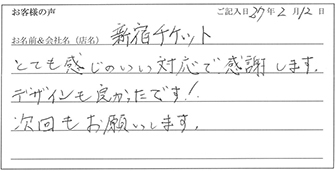 お客様の声 ご記入日 27年 2月 12日
お名前&会社名（店名） 新宿チケット
とても感じのいい対応で感謝します。
デザインも良かったです！
次回もお願いします。